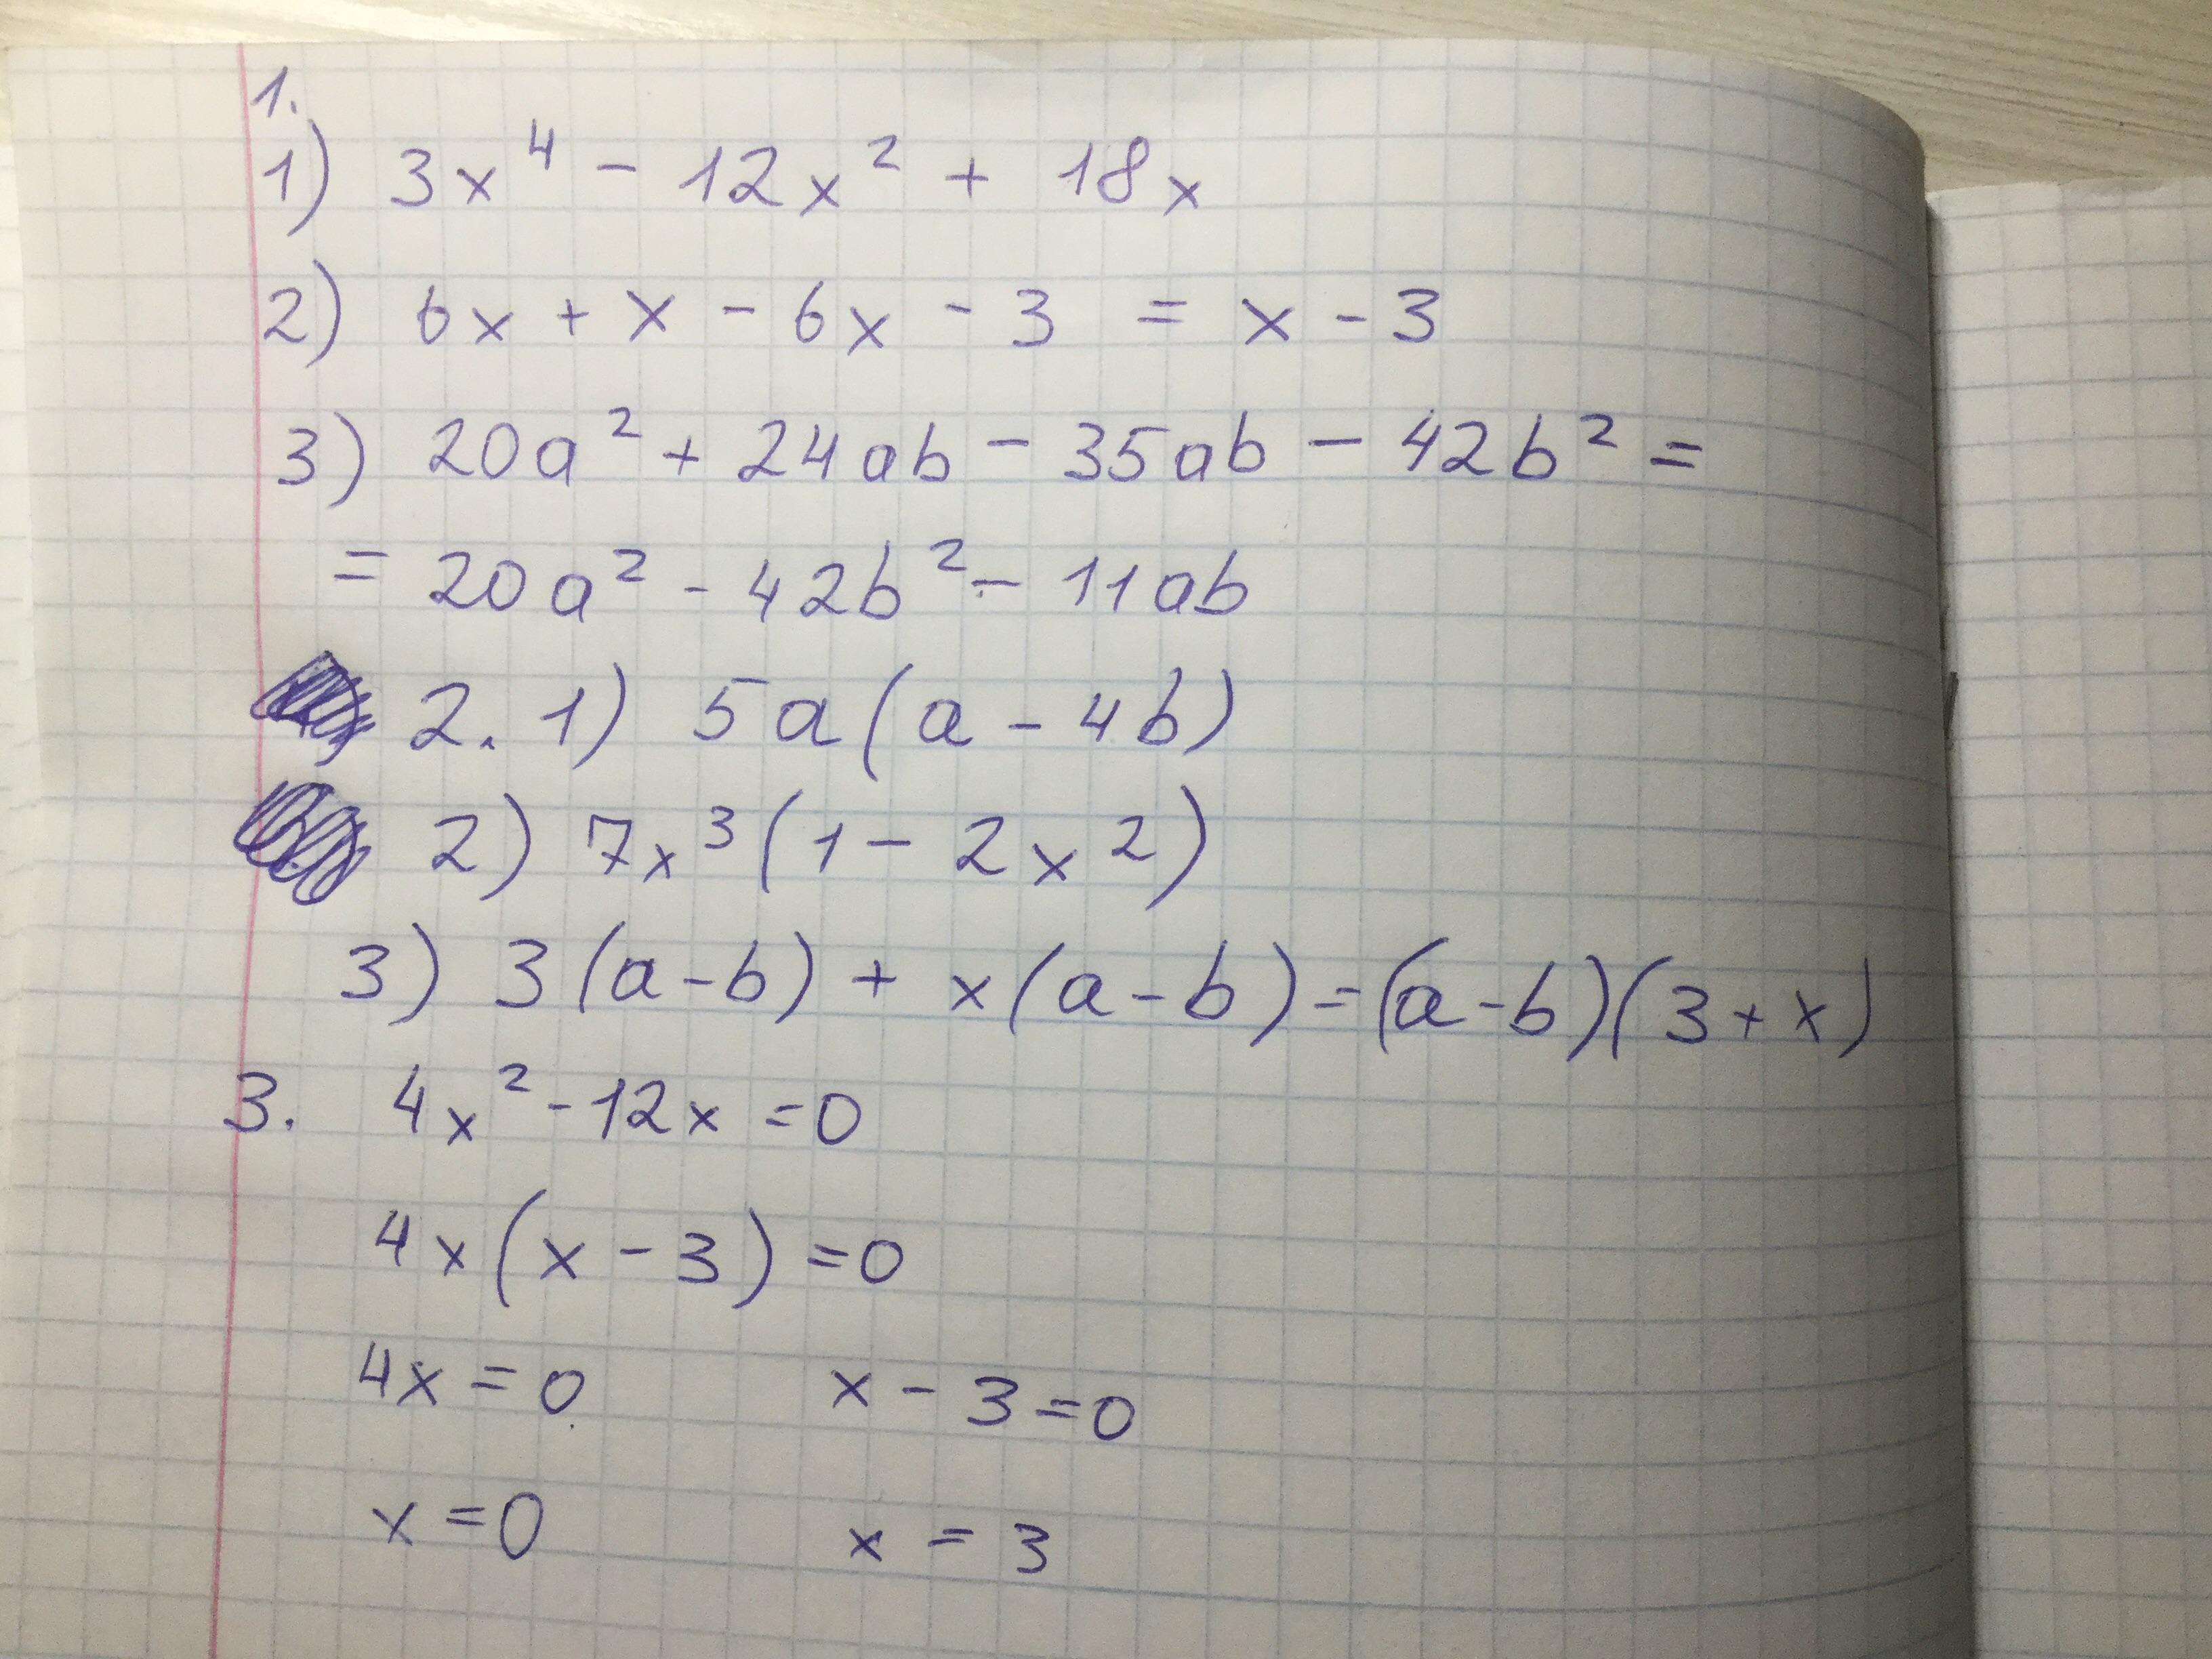 1.
1) 3x⁴ - 12x² + 18x
2) 6x + x - 6x - 3 = x - 3
3) 20a² + 24ab - 35ab - 42b² =
= 20a² - 42b² - 11ab
2. 1) 5a(a - 4b)
2) 7x³(1 - 2x²)
3) 3(a-b) + x(a-b) = (a-b)(3+x)
3. 4x² - 12x = 0
4x(x - 3) = 0
4x = 0 x - 3 = 0
x = 0 x = 3